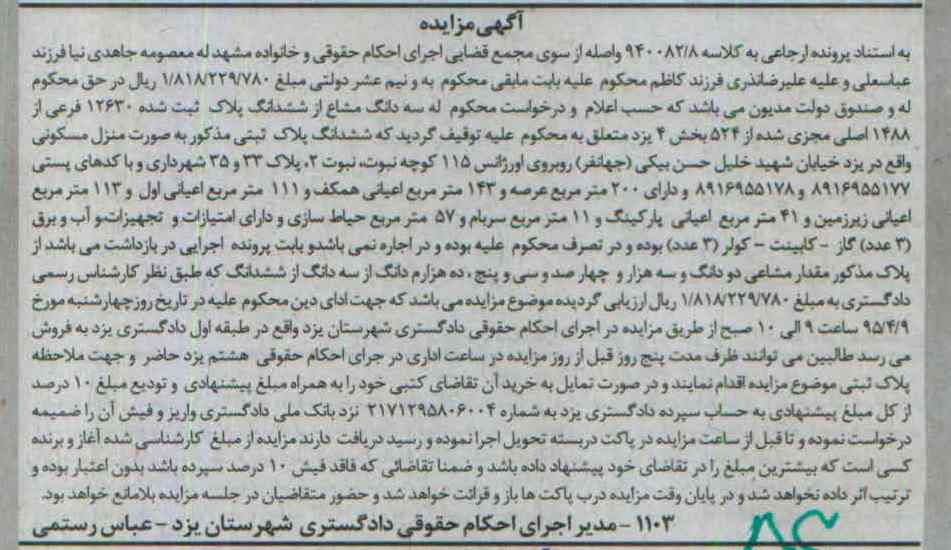 آگهی مزایده
به استناد پرونده ارجاعی به کلاسه ۹۴۰۰۸۲/۸ واصله از سوی مجمع قضایی اجرای احکام حقوقی و خانواده مشهد له معصومه جاهدی نیا فرزند
عباسعلی و علیه علیرضانذری فرزند کاظم محکوم علیه بابت مابقی محکوم به و نیم عشر دولتی مبلغ ۱/۸۱۸/۲۲۹/۷۸۰ ریال در حق محکوم
له و صندوق دولت مدیون می باشد که حسب اعلام و درخواست محکوم له سه دانگ مشاع از ششدانگ پلاک ثبت شده ۱۲۶۳۰ فرعی از
۱۴۸۸ اصلی مجزی شده از ۵۲۴ بخش ۴ یزد متعلق به محکوم علیه توقیف گردید که ششدانگ پلاک ثبتی مذکور به صورت منزل مسکونی
واقع در یزد خیابان شهید خلیل حسن بیکی (جهانفر) روبروی اورژانس ۱۱۵ کوچه نبوت، نبوت ۲، پلاک ۳۳ و ۳۵ شهرداری و با کدهای پستی
۸۹۱۶۹۵۵۱۷۷ و ۸۹۱۶۹۵۵۱۷۸ و دارای ۲۰۰ متر مربع عرصه و ۱۴۳ متر مربع اعیانی همکف و ۱۱۱ متر مربع اعیانی اول و ۱۱۳ متر مربع
اعیانی زیرزمین و ۴۱ متر مربع اعیانی پارکینگ و ۱۱ متر مربع سربام و ۵۷ متر مربع حیاط سازی و دارای امتیازات و تجهیزات،و آب و برق
(۳ عدد) گاز - کابینت - کولر (۳ عدد) بوده و در تصرف محکوم علیه بوده و در اجاره نمی باشدو بابت پرونده اجرایی در بازداشت می باشد از
پلاک مذکور مقدار مشاعی دو دانگ و سه هزار و چهار صد و سی و پنج ، ده هزارم دانگ از سه دانگ از ششدانگ که طبق نظر کارشناس رسمی
دادگستری به مبلغ ۱/۸۱۸/۲۲۹/۷۸۰ ریال ارزیابی گردیده موضوع مزایده می باشد که جهت ادای دین محکوم علیه در تاریخ روزچهارشنبه مورخ
۹۵/۴/۹ ساعت ۹ الی ۱۰ صبح از طریق مزایده در اجرای احکام حقوقی دادگستری شهرستان یزد واقع در طبقه اول دادگستری یزد به فروش
می رسد طالبین می توانند ظرف مدت پنج روز قبل از روز مزایده در ساعت اداری در جرای احکام حقوقی هشتم یزد حاضر و جهت ملاحظه
پلاک ثبتی موضوع مزایده اقدام نمایند و در صورت تمایل به خرید آن تقاضای کتبی خود را به همراه مبلغ پیشنهادی و تودیع مبلغ ۱۰ درصد
از کل مبلغ پیشنهادی به حساب سپرده دادگستری یزد به شماره ۲۱۷۱۲۹۵۸۰۶۰۰۴ نزد بانک ملی دادگستری واریز و فیش آن را ضمیمه
درخواست نموده و تا قبل از ساعت مزایده در پاکت دربسته تحویل اجرا نموده و رسید دریافت دارند مزایده از مبلغ کارشناسی شده آغاز و برنده
کسی است که بیشترین مبلغ را در تقاضای خود پیشنهاد داده باشد و ضمنا تقاضائی که فاقد فیش ۱۰ درصد سپرده باشد بدون اعتبار بوده و
ترتیب اثر داده نخواهد شد و در پایان وقت مزایده درب پاکت ها باز و قرائت خواهد شد و حضور متقاضیان در جلسه مزایده بلامانع خواهد بود.
۱۱۰۳ - مدیر اجرای احکام حقوقی دادگستری شهرستان یزد - عباس رستمی